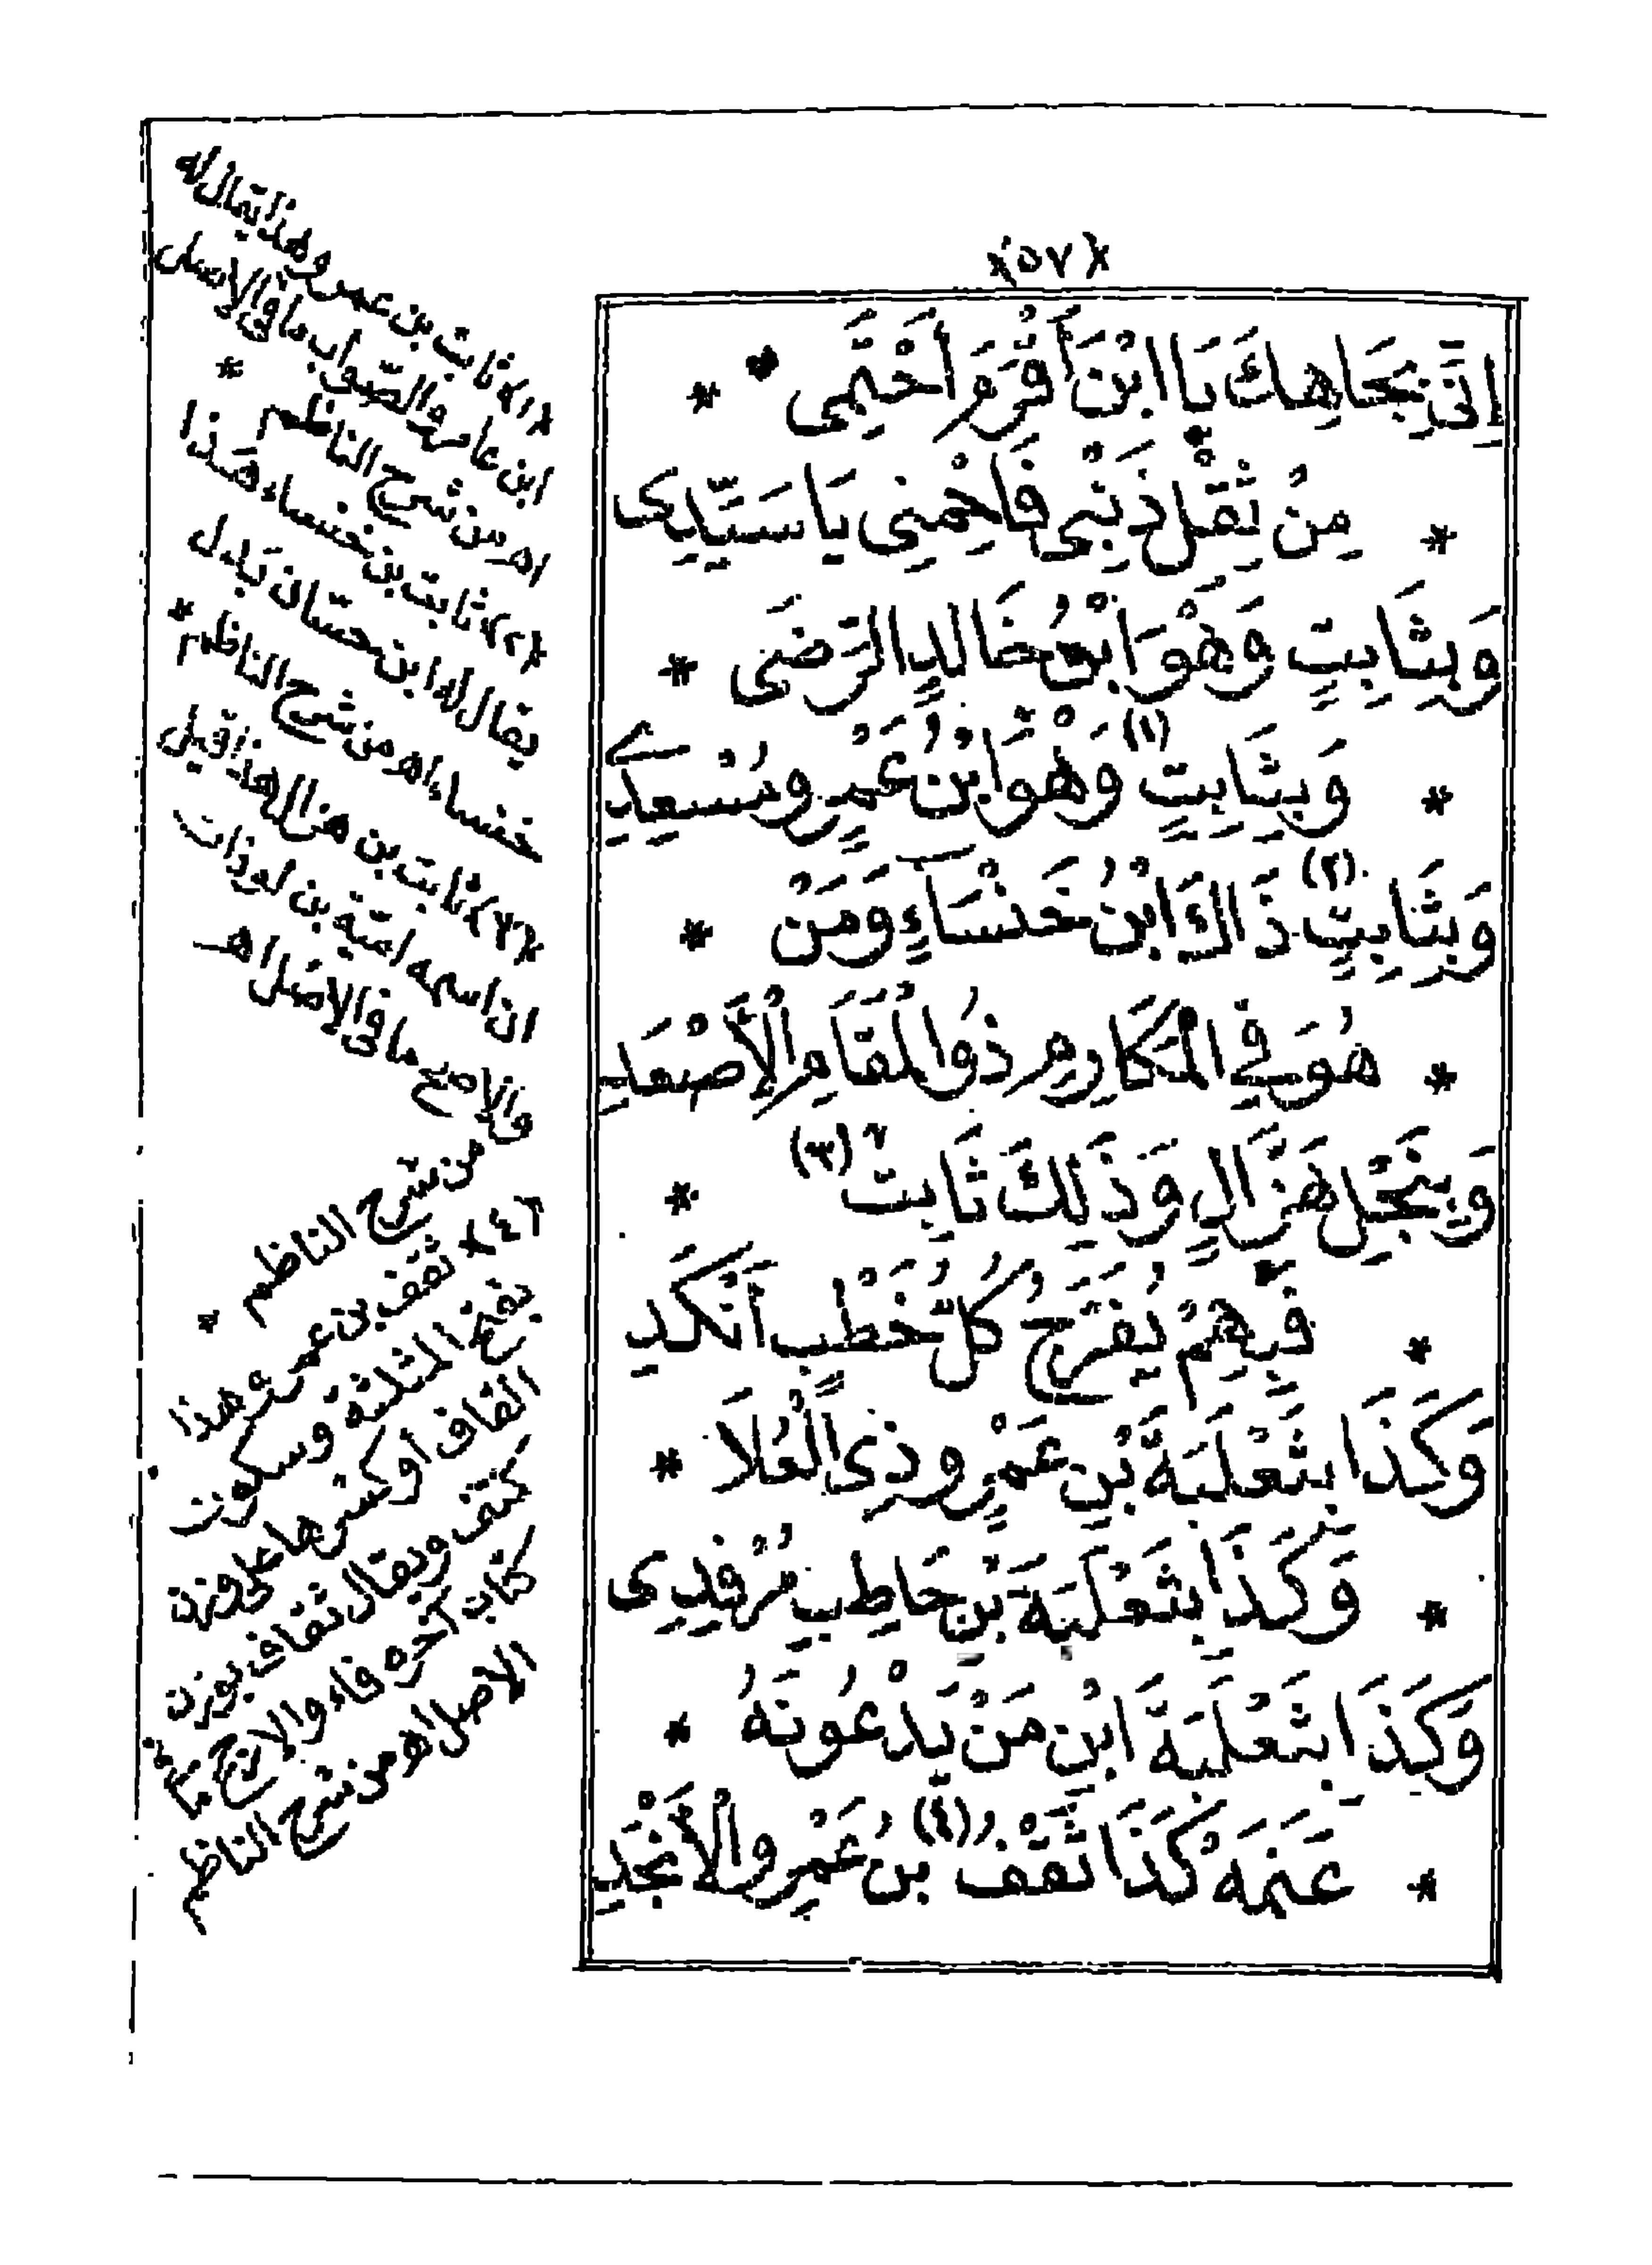 ﴿٥٧﴾
اِنِّى بِجَاهِكَ يَا ابْنَ أَقْرَمَ أَحْتَمِى *
* مِنْ ثِقْلِ ذَنْبِى فَاحْمِنِى يَا سَيِّدِى
وَبِثَابِتٍ وَهْوَ ابْنُ خَالِدٍ الرَّضَى *
* وَبِثَابِتٍ (١) وَهْوَ ابْنُ عَمْرٍو مُسْعِدِى
وَبِثَابِتٍ (٢) ذَاكَ ابْنُ خَنْسَاءٍ وَمَنْ *
* هُوَ فِي الْمَكَارِمِ ذُو الْمَقَامِ الْأَصْعَدِ
وَبِنَجْلِ هَزَّالٍ وَذَلِكَ ثَابِتٌ (٣) *
* فَبِهِمْ يُفَرَّجُ كُلُّ خَطْبٍ أَنْكَدِ
وَكَذَا بِثَعْلَبَةَ بْنِ عَمْرٍو ذِى الْعُلَا *
* وَكَذَا بِثَعْلَبَةَ بْنِ حَاطِبِ مُرْفِدِى
وَكَذَا بِثَعْلَبَةَ ابْنِ مَنْ يَدْعُونَهُ *
* عَنَمَهْ كَذَا ثَقْفُ (٤) بْنُ عَمْرِو الْأَنْجَدِ
﴿١﴾ ثابت بن عمرو هذا يقال له
ابن عامر والصّواب ما في الاصل
اهـ من شرح الناظم *
﴿٢﴾ ثابت بن خنساء هذا
يقال له ابن حسّان بَدل
خنساء اهـ من شرح الناظم *
﴿٣﴾ ثابت بن هزال هذا قيل
ان اسمه اميّة بن لوذان
والاصح ما في الاصْل اهـ
من شرح الناظم *
﴿٤﴾ ثقف بن عمرو هذا
بفتح المثلثة وسكون
القاف أو كسرها على وزن
كتف ويقال ثقاف بوزن
كتاب آخره فاء والارجح ما في
الاصل اهـ من شرح الناظم